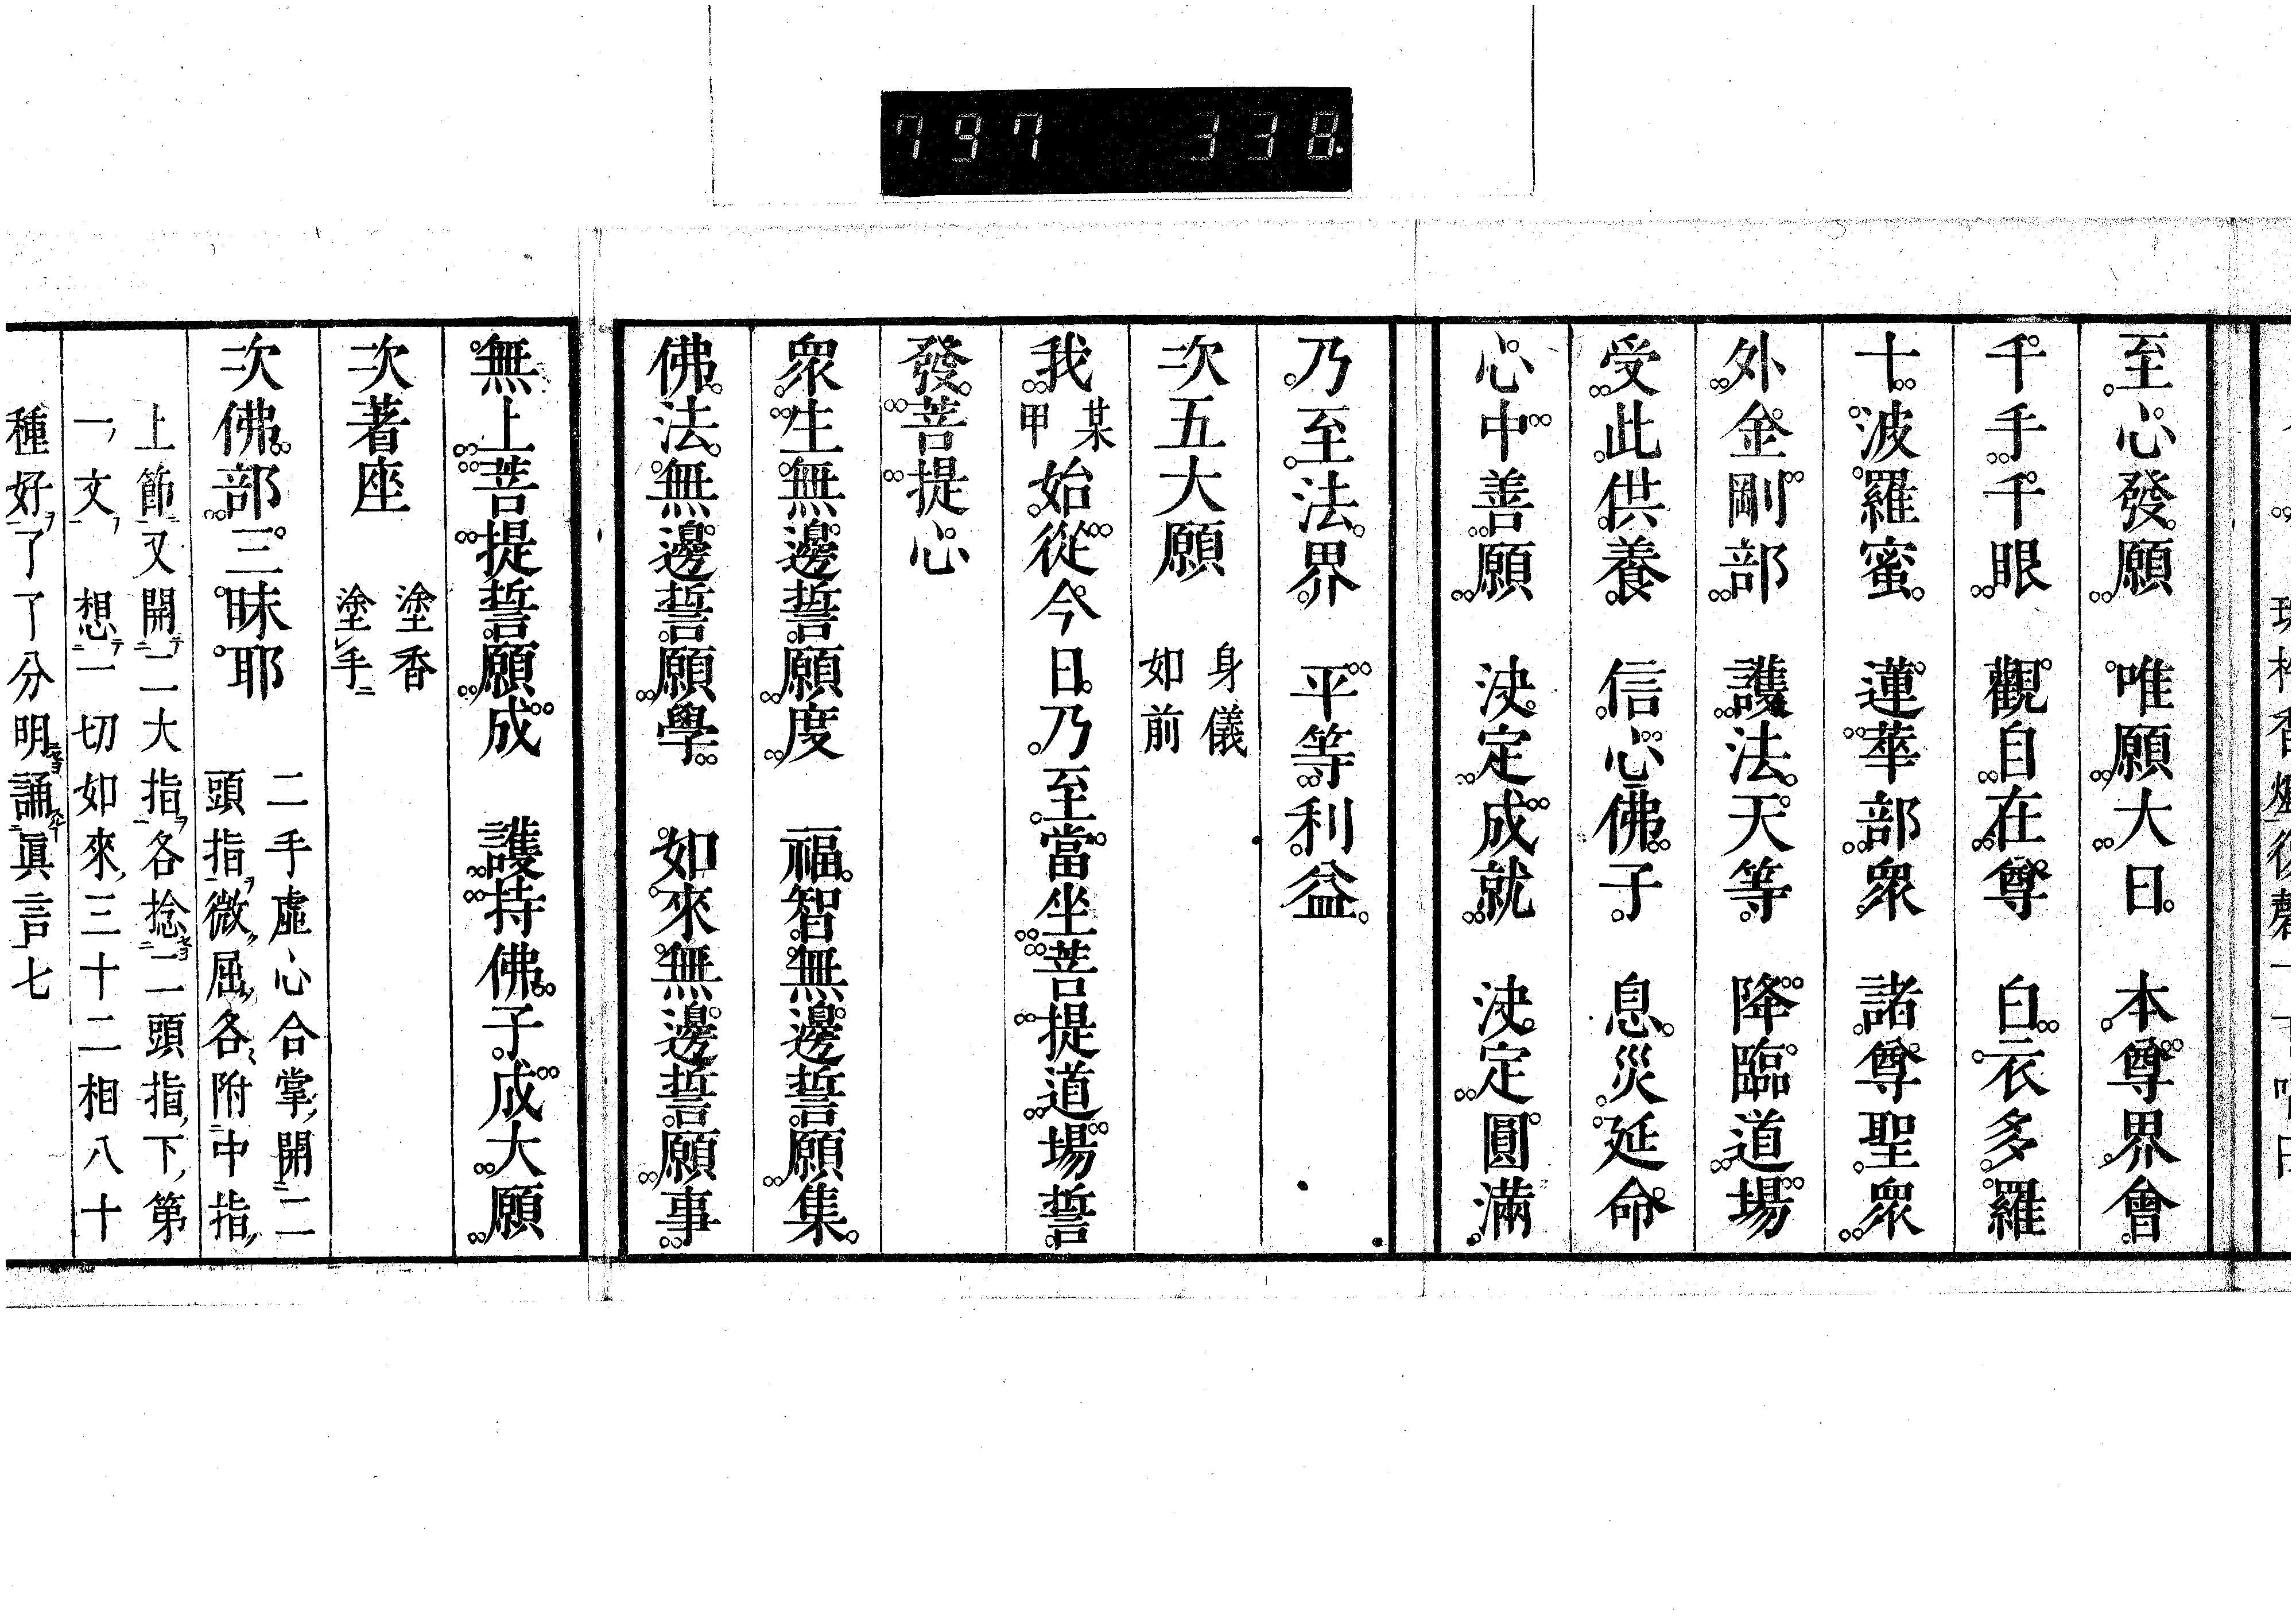 797 338
至心發願 唯願大日 本尊界會
千手千眼 觀自在尊 白衣多羅
十波羅蜜 蓮華部衆 諸尊聖衆
外金剛部 護法天等 降臨道場
受此供養 信心佛子 息災延命
心中善願 決定成就 決定圓滿
乃至法界 平等利益
次五大願 身儀如前
我某甲始從今日乃至當坐菩提道場誓
發菩提心
衆生無邊誓願度 福智無邊誓願集
佛法無邊誓願學 如來無邊誓願事
無上菩提誓願成 護持佛子成大願
次著座 塗香塗レ手ニ
次佛部三昧耶 二手虛心合掌開二
頭指微屈各附中指
上節又開二大指各捻二頭指下第
一文 想一切如來三十二相八十
種好了了分明誦眞言七